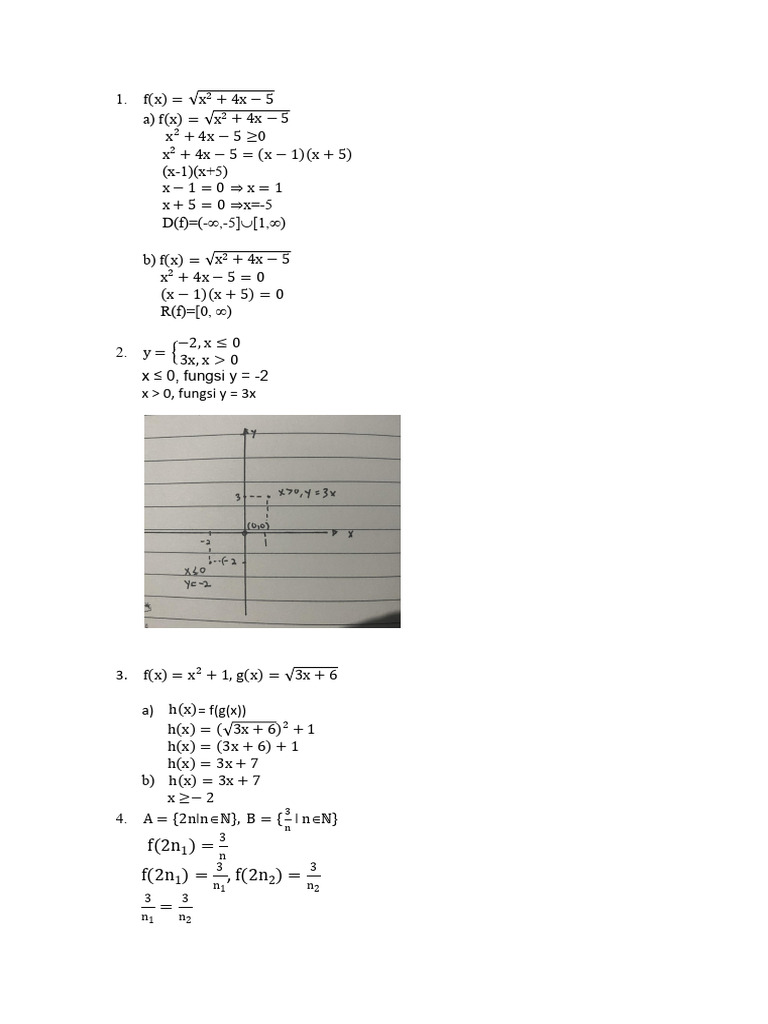 1. f(x) = √(x² + 4x − 5)
a) f(x) = √(x² + 4x − 5)
x² + 4x − 5 ≥0
x² + 4x − 5 = (x − 1)(x + 5)
(x-1)(x+5)
x − 1 = 0 ⇒ x = 1
x + 5 = 0 ⇒x=-5
D(f)=(-∞,-5]∪[1,∞)
b) f(x) = √(x² + 4x − 5)
x² + 4x − 5 = 0
(x − 1)(x + 5) = 0
R(f)=[0, ∞)
2. y = {−2, x ≤ 0
3x, x > 0
x ≤ 0, fungsi y = -2
x > 0, fungsi y = 3x
y
3 x>0, y = 3x
(0,0)
x
-2 1
(-2
x≤0
y=-2
3. f(x) = x² + 1, g(x) = √(3x + 6)
a) h(x)= f(g(x))
h(x) = (√(3x + 6))² + 1
h(x) = (3x + 6) + 1
h(x) = 3x + 7
b) h(x) = 3x + 7
x ≥− 2
4. A = {2n|n∈ℕ}, B = {3/n | n∈ℕ}
f(2n₁) = 3/n
f(2n₁) = 3/n₁, f(2n₂) = 3/n₂
3/n₁ = 3/n₂